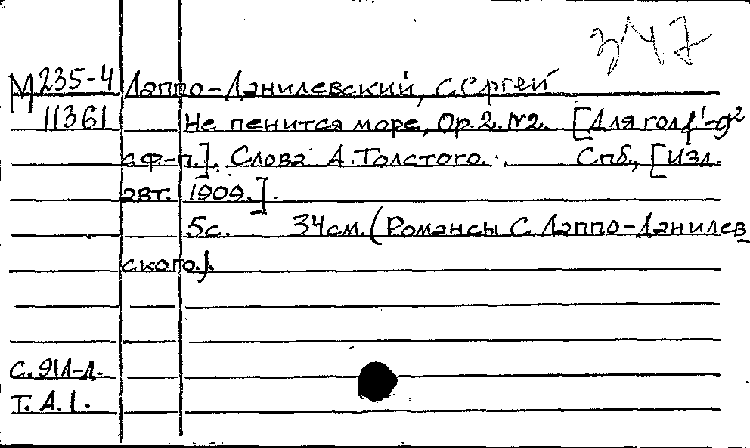 347
М 235-4 Лаппо-Данилевский, С. Сргей
11361 Не пенится море, Ор. 2. №2. [Для гол. f'-g²
с ф-п.]. Слова А. Толстого. Спб., [изд.
авт. 1909.].
5с. 34см. (Романсы С. Лаппо-Данилев
ского.).
С. 91Л-Л.
Т. А. 1.